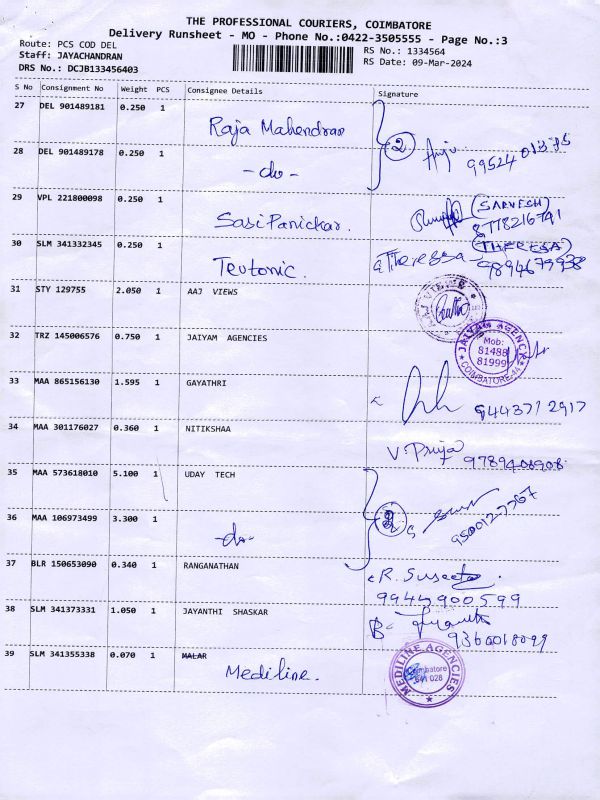 THE PROFESSIONAL COURIERS, COIMBATORE
Delivery Runsheet - MO - Phone No.:0422-3505555 - Page No.:3
Route: PCS COD DEL
RS No.: 1334564
Staff: JAYACHANDRAN
RS Date: 09-Mar-2024
DRS No.: DCJB133456403
S No Consignment No Weight PCS Consignee Details Signature
27 DEL 901489181 0.250 1 Raja Mahendran
28 DEL 901489178 0.250 1 -do- 2 Anju
29 VPL 221800098 0.250 1 Sasi Panickar. (SARVESH)
8778216791
30 SLM 341332345 0.250 1 Teutonic. Theressa (THERESA)
9894679938
31 STY 129755 2.050 1 AAJ VIEWS AAJ VIEWS
32 TRZ 145006576 0.750 1 JAIYAM AGENCIES JAIYAM AGENCIES
Mob:
81488
81999
COIMBATORE-44
33 MAA 865156130 1.595 1 GAYATHRI 9443712917
34 MAA 301176027 0.360 1 NITIKSHAA V Priya 9789408908
35 MAA 573618010 5.100 1 UDAY TECH
36 MAA 106973499 3.300 1 -do-
37 BLR 150653090 0.340 1 RANGANATHAN R. Suseeta
9944900599
38 SLM 341373331 1.050 1 JAYANTHI SHASKAR
39 SLM 341355338 0.070 1 MALAR
Mediline.
MEDILINE AGENCIES
Coimbatore
641 028